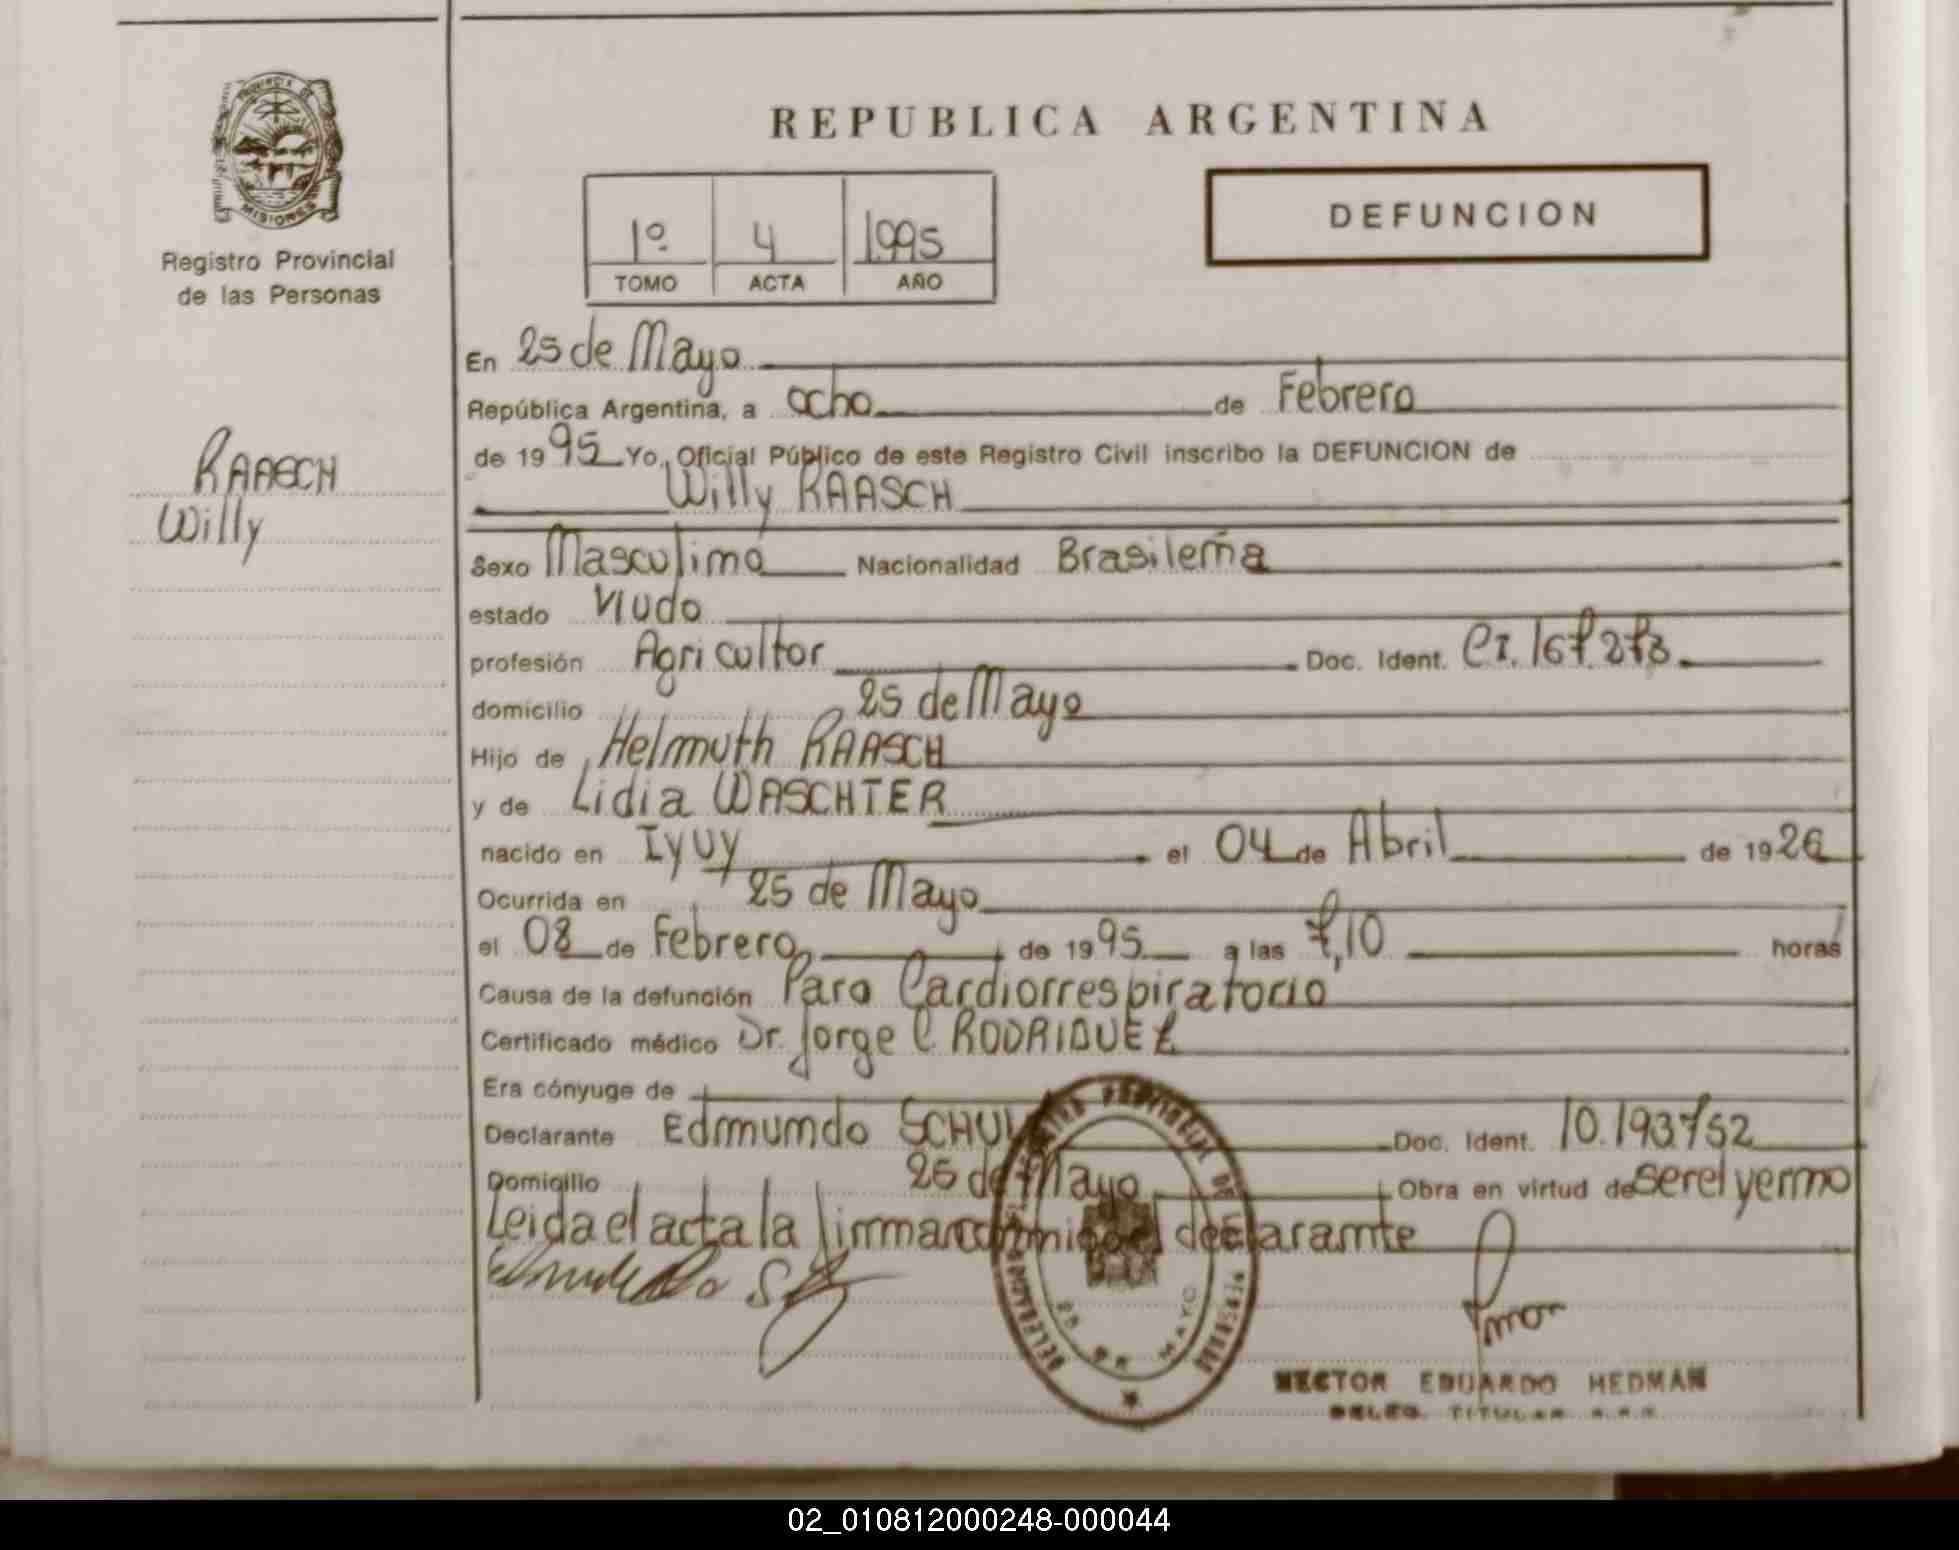 PROVINCIA DE
MISIONES
Registro Provincial
de las Personas
RAASCH
Willy
REPUBLICA ARGENTINA
1º 4 1995
TOMO ACTA AÑO
DEFUNCION
En 25 de Mayo
República Argentina, a ocho de Febrero
de 1995 Yo, Oficial Público de este Registro Civil inscribo la DEFUNCION de
Willy RAASCH
Sexo Masculino Nacionalidad Brasileña
estado Viudo
profesión Agricultor Doc. Ident. CI. 167.273
domicilio 25 de Mayo
Hijo de Helmuth RAASCH
y de Lidia WASCHTER
nacido en Iyuy el 04 de Abril de 1926
Ocurrida en 25 de Mayo
el 08 de Febrero de 1995 a las 7,10 horas
Causa de la defunción Paro Cardiorrespiratorio
Certificado médico Dr. Jorge C RODRIGUEZ
Era cónyuge de
Declarante Edmundo Doc. Ident. 10.193752
Domicilio 25 de Mayo Obra en virtud de ser el yerno
Leida el acta la firman conmigo el declarante
25 DE MAYO
HECTOR EDUARDO HEDMAN
DELEG. TITULAR
02_010812000248-000044